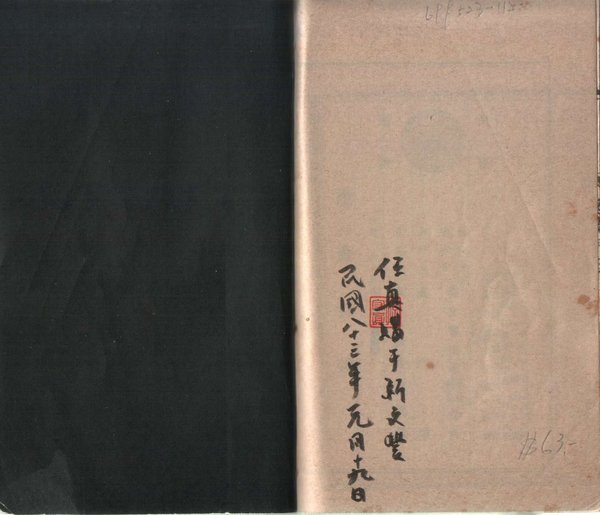 任真購于新文豐
民國八十三年元月十九日
$63.-